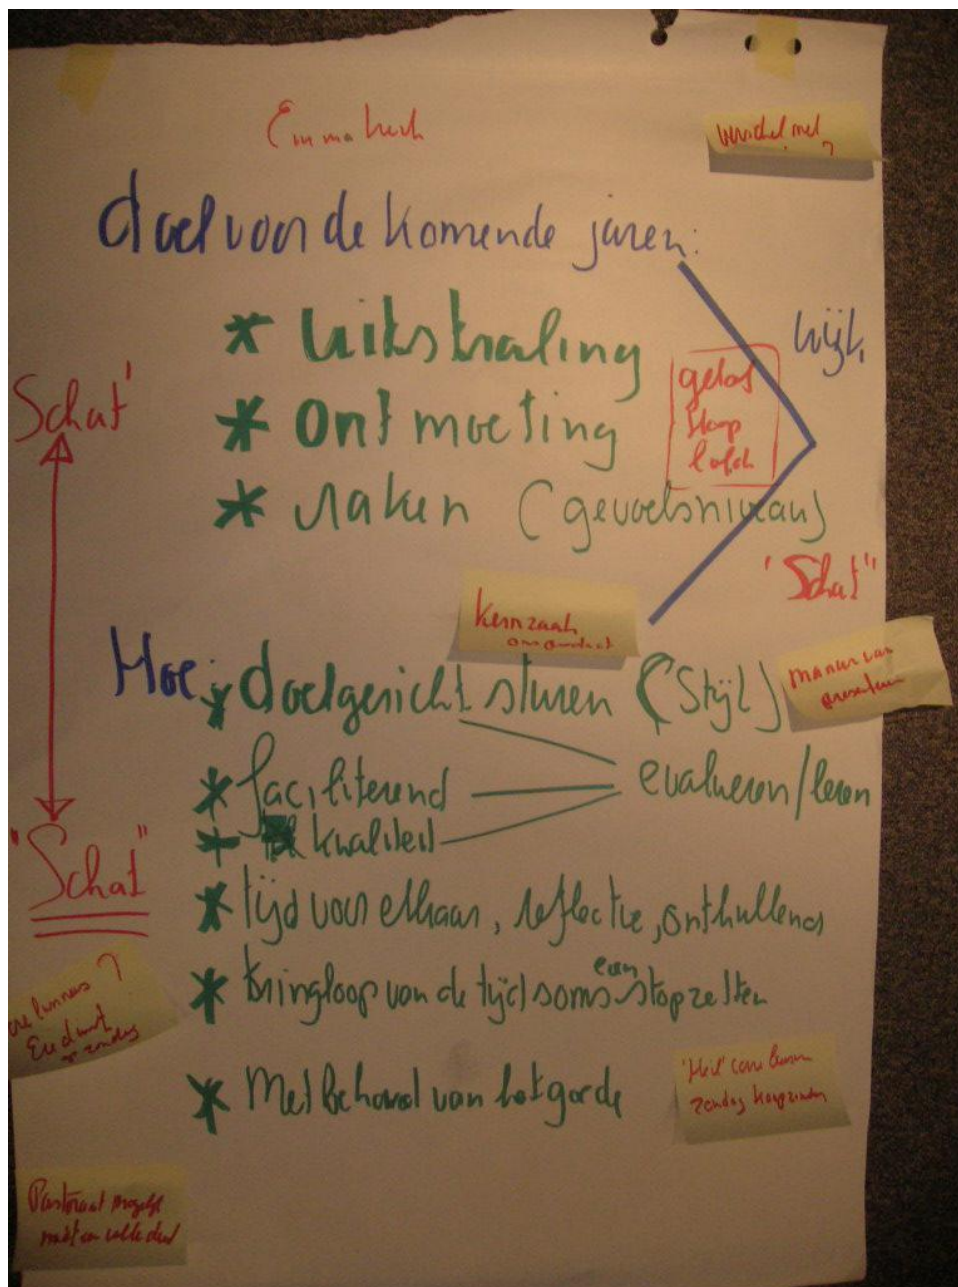 Emmakerk
doel voor de komende jaren:
* uitstraling
* ontmoeting
* raken (gevoelsniveau)
wijk
geloof
hoop
liefde
Schat'
"Schat"
'Schat"
kernzaak
Hoe:
* doelgericht sturen (Stijl)
manier van
presenteren
* faciliterend
evalueren/leren
* kwaliteit
* tijd voor elkaar, reflectie, onthullend
* kringloop van de tijd soms even stopzetten
* Met behoud van het goede
zondag
Pastoraat